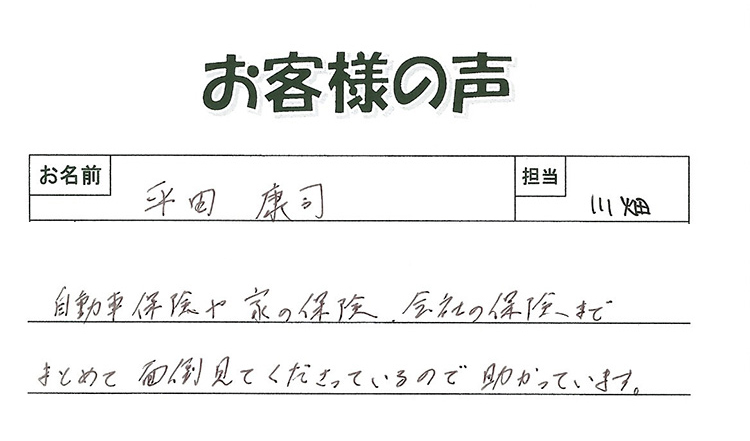 お客様の声
お名前 平田 康司 担当 川畑
自動車保険や家の保険、会社の保険まで
まとめて面倒見てくださっているので助かっています。